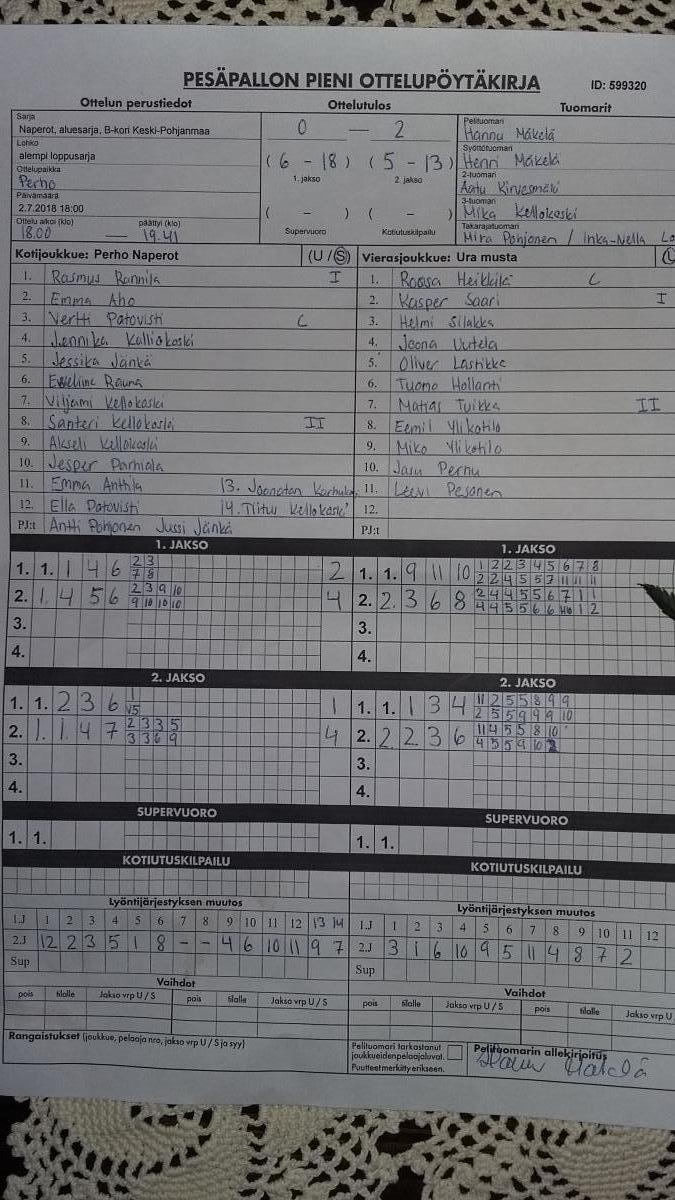 PESÄPALLON PIENI OTTELUPÖYTÄKIRJA ID: 599320
Ottelun perustiedot Ottelutulos Tuomarit
Sarja
Naperot, aluesarja, B-kori Keski-Pohjanmaa
Lohko
alempi loppusarja
Ottelupaikka
Perho
Päivämäärä
2.7.2018 18:00
Ottelu alkoi (klo) päättyi (klo)
18.00 — 19.41
0 — 2
(6 - 18) (5 - 13)
1. jakso 2. jakso
( - ) ( - )
Supervuoro Kotiutuskilpailu
Pelituomari
Hannu Mäkelä
Syöttötuomari
Henri Mäkelä
2-tuomari
Aatu Kirvesmäki
3-tuomari
Mika Kellokoski
Takarajatuomari
Mira Pohjonen / Inka-Nella
Kotijoukkue: Perho Naperot (U / S)
1. Rasmus Rannila I
2. Emma Aho
3. Vertti Patovisti C
4. Jennika Kalliokoski
5. Jessika Jänkä
6. Eveliina Rauna
7. Viljami Kellokoski
8. Santeri Kellokoski II
9. Akseli Kellokoski
10. Jesper Parhiala
11. Emma Anthla 13. Joonatan
12. Ella Patovisti 14. Kellokoski
PJ:t Antti Pohjonen Jussi Jänkä
Vierasjoukkue: Ura musta
1. Roosa Heikkilä C
2. Kasper Saari I
3. Helmi Silakka
4. Joona Uutela
5. Oliver Lastikka
6. Tuomo Hollanti
7. Matias Tuikka II
8. Eemil Ylikotilo
9. Miko Ylikotilo
10. Jasu Perhu
11. Leevi Pesonen
12.
PJ:t
1. JAKSO
1. 1. 1 4 6 2 3 2
7 8
2. 1. 4 5 6 2 3 9 10 4
9 10 10 10
3.
4.
1. JAKSO
1. 1. 9 11 10 1 2 2 3 4 5 6 7 8
2 2 4 5 5 7 11 11 11
2. 2. 3 6 8 2 4 4 5 5 6 7 1 1
4 4 5 5 6 6 1 2
3.
4.
2. JAKSO
1. 1. 2 3 6 1 1
2. 1. 1. 4 7 2 3 3 5 4
3 3 6 9
3.
4.
2. JAKSO
1. 1. 1 3 4 11 2 5 5 8 9 9
2 5 5 9 9 9 10
2. 2. 2 3 6 11 4 5 5 8 10
4 5 5 9 10
3.
4.
SUPERVUORO
1. 1.
SUPERVUORO
1. 1.
KOTIUTUSKILPAILU
KOTIUTUSKILPAILU
Lyöntijärjestyksen muutos
1.J 1 2 3 4 5 6 7 8 9 10 11 12 13 14
2.J 12 2 3 5 1 8 - - 4 6 10 11 9 7
Sup
Lyöntijärjestyksen muutos
1.J 1 2 3 4 5 6 7 8 9 10 11 12
2.J 3 1 6 10 9 5 11 4 8 7 2
Sup
Vaihdot
pois tilalle Jakso vrp U / S pois tilalle Jakso vrp U / S
Vaihdot
pois tilalle Jakso vrp U / S pois tilalle Jakso vrp U
Rangaistukset (joukkue, pelaaja nro, jakso vrp U / S ja syy)
Pelituomari tarkastanut
joukkueidenpelaajaluval.
Puutteet merkitty erikseen.
Pelituomarin allekirjoitus